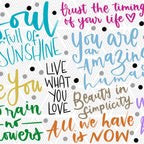 Soul
full of
SUNSHINE
trust the timing
of your life
you are
an
amazing
human
LIVE
WHAT
YOU
LOVE
Beauty in
Simplicity
e You
no rain
no
flowers
All we have
is NOW